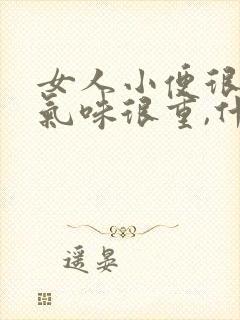 女人小便很
氣味很重,什
遥晏